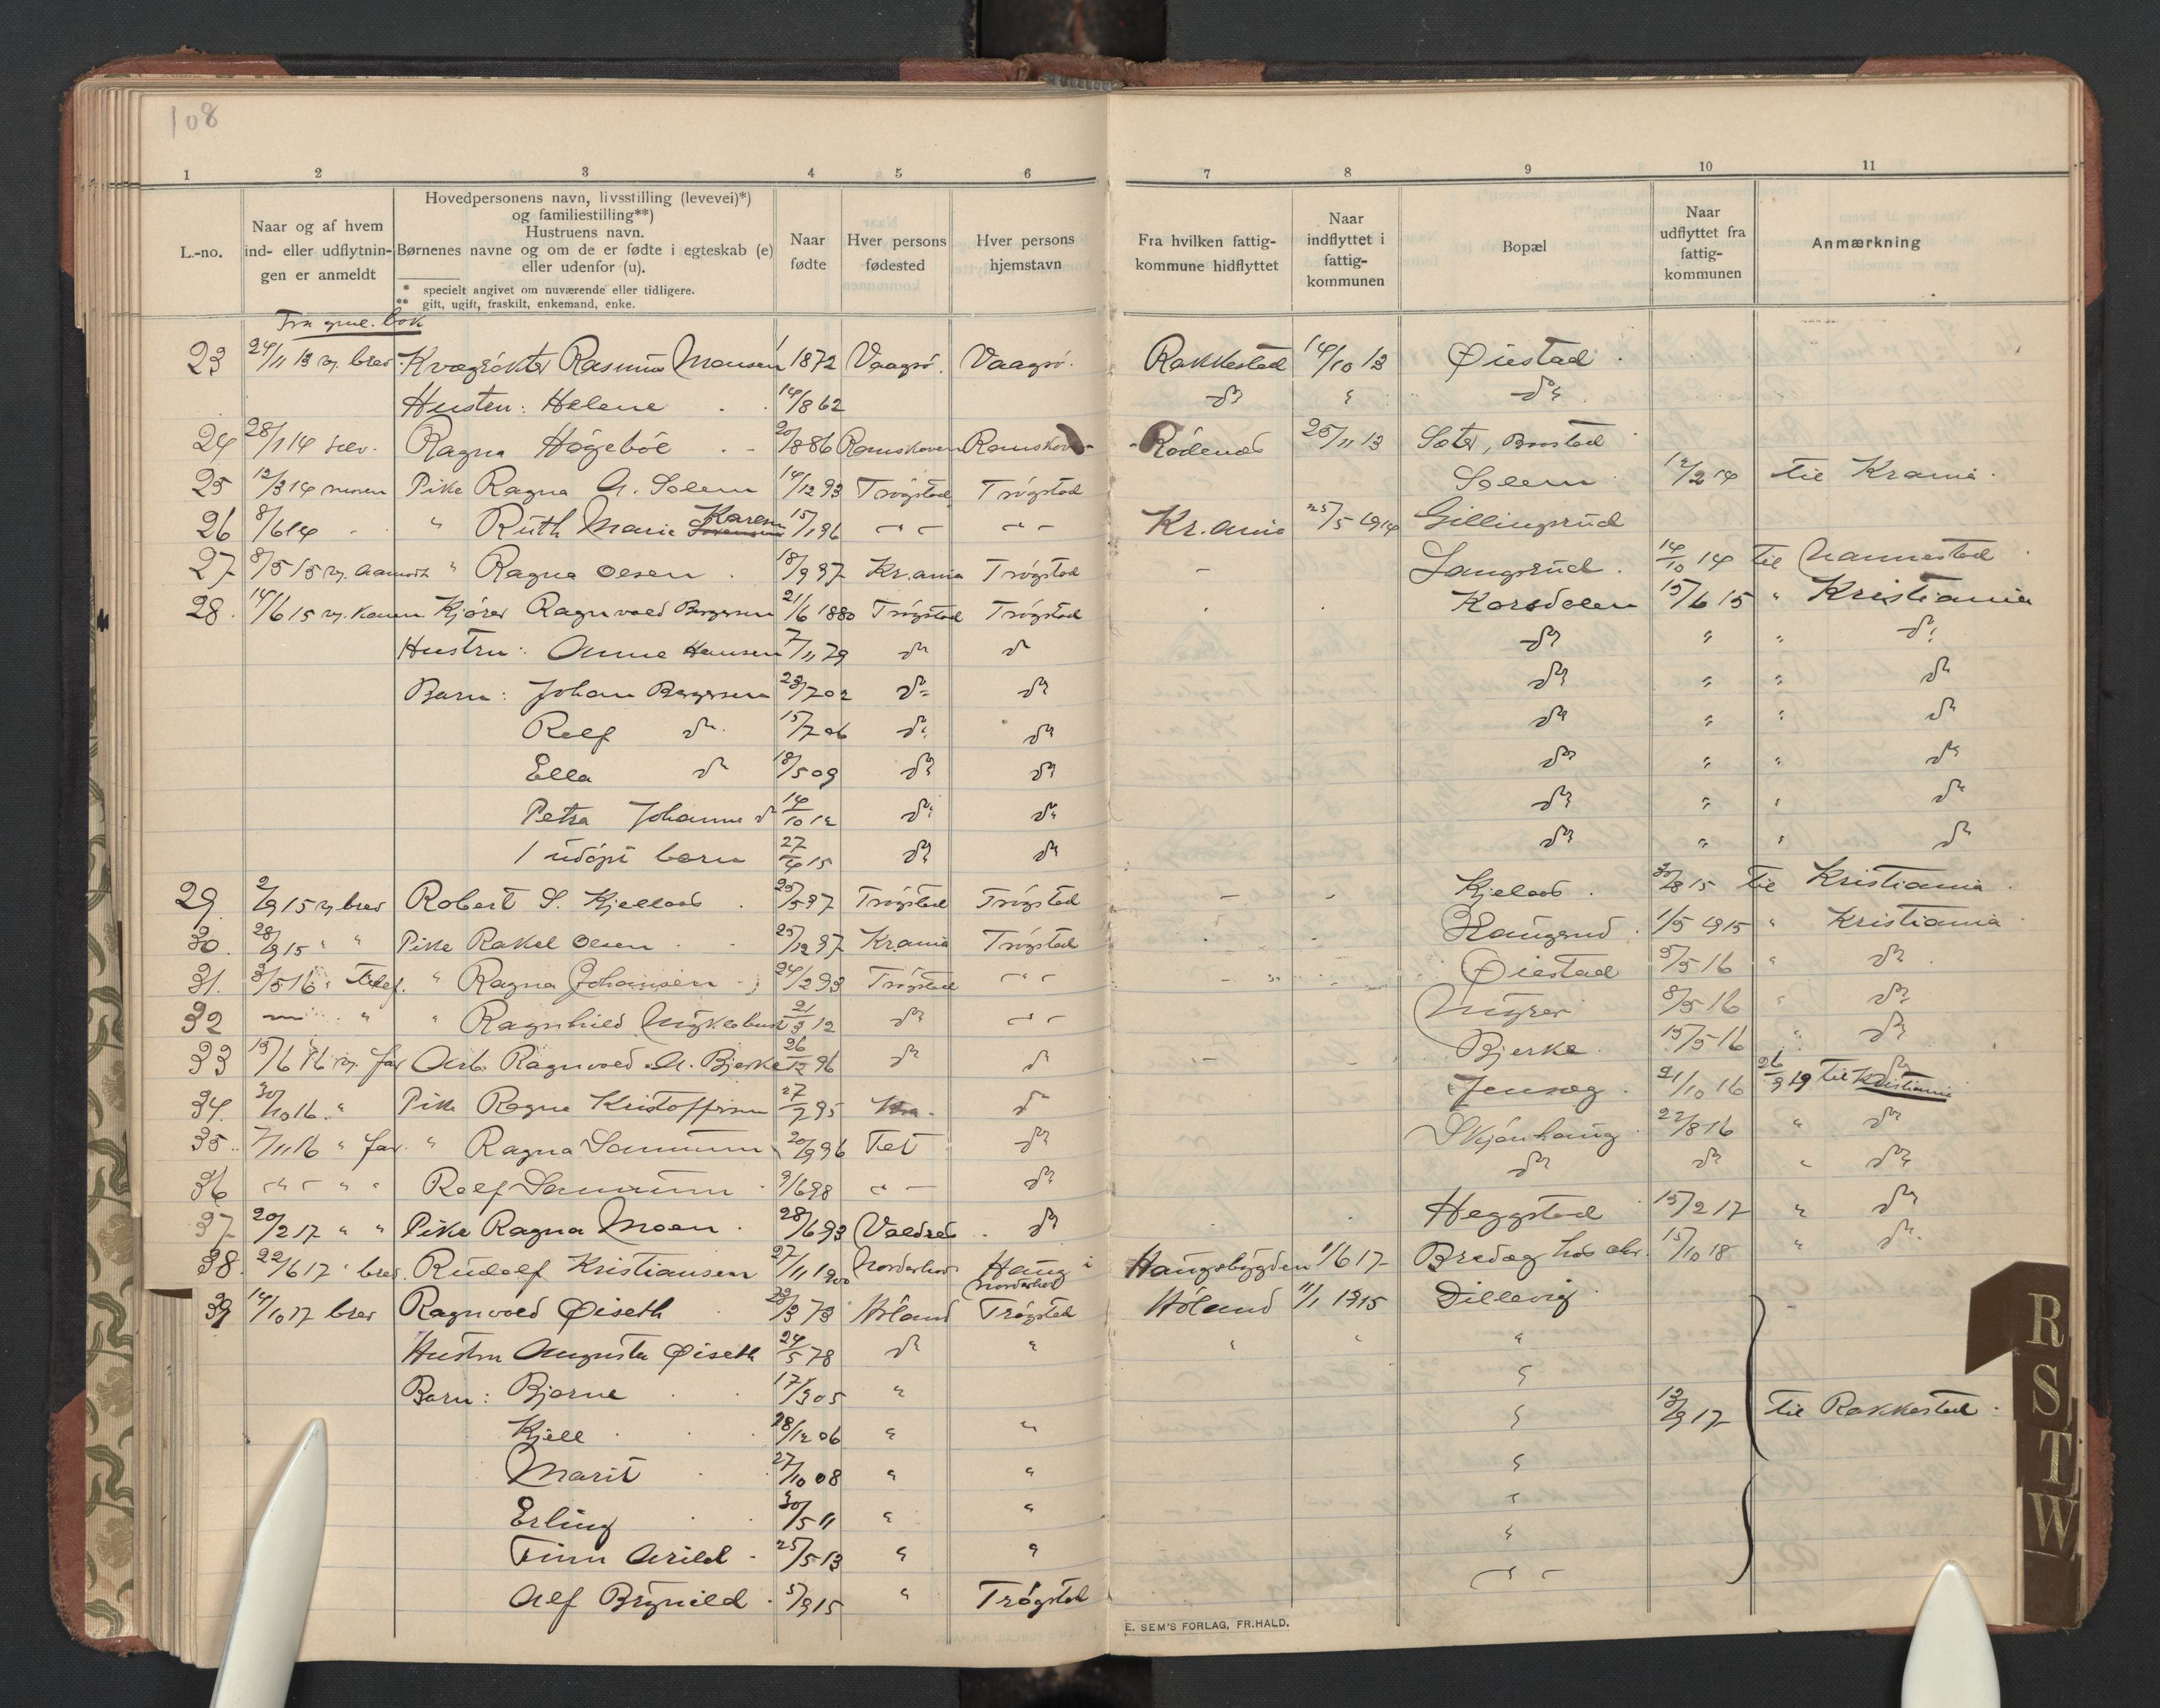 108
1 2 3 4 5 6 7 8 9 10 11
L.-no.
Naar og af hvem
ind- eller udflytnin-
gen er anmeldt
Hovedpersonens navn, livsstilling (levevei)*)
og familiestilling**)
Hustruens navn.
Børnenes navne og om de er fødte i egteskab (e)
eller udenfor (u).
* specielt angivet om nuværende eller tidligere.
** gift, ugift, fraskilt, enkemand, enke.
Naar
fødte
Hver persons
fødested
Hver persons
hjemstavn
Fra hvilken fattig-
kommune hidflyttet
Naar
indflyttet i
fattig-
kommunen
Bopæl
Naar
udflyttet fra
fattig-
kommunen
Anmærkning
Fra gml. bok
23 24/11 13 brev Rasmus 1872 Vaagsø. Vaagsø. Rakkestad 14/10 13 Øiestad
Hustru: Helene 14/8 62 do " do
24 28/1 14 selv. Ragna Høgebøl 20/8 86 Rømskoven Rømskov Rødenes 25/11 13
25 12/3 14 Pike Ragna A. Solem 14/12 93 Trøgstad Trøgstad Solem til Krania.
26 8/6 14 " Ruth Marie 15/1 96 - " - - " - Kr.ania 25/5 1914 Gillingsrud
27 8/5 15 " Ragna Olsen 18/9 97 Kr.ania Trøgstad - Langsrud. 14/10 14 til Nannestad
28. 14/6 15 Kjører Ragnvald Bergersen 21/6 1880 Trøgstad Trøgstad Korsdalen 15/6 15 " Kristiania
Hustru: Anne Hansen 7/11 79 do do do " " do
Barn: Johan Bergersen 23/7 02 do do do " " do
Rolf do 15/7 06 do do do " " do
Ella do 18/5 09 do do do " " do
Petra Johanne do 14/10 12 do do do " " do
1 udøpt barn 27/4 15 do do do " " do
29. 2/9 15 brev Robert S. 25/5 97 Trøgstad Trøgstad - - 30/8 15 til Kristiania.
30. 28/9 15 " " Pike Rakel Olsen 25/12 97 Krania Trøgstad Langsrud 1/5 1915 " Kristiania
31. 3/5 16 " Telef. " Ragna Johansen 24/2 93 Trøgstad - " - Øiestad 5/5 16 " do
32 - " - " " Ragnhild 21/3 12 do - " - 8/5 16 " do
33 15/6 16 far Arb. Ragnvald A. Bjerke 26/12 96 do do Bjerke 15/5 16 " do
34. 30/10 16. " Pike Ragna Kristoffersen 27/7 95 Kra. do 21/10 16 26/9 19 til Kristiania
35. 7/11 16 " far " Ragna 20/9 96 do Skjønhaug 22/8 16 " do
36 - " - " " Rolf 9/6 98 - " - do do do " do
37 20/2 17 " " Pike Ragna Moen 28/6 93 Valdres do Heggstad 15/2 17 " do
38. 22/6 17 " brev. Rudolf Kristiansen 27/11 1900 Norderhov Haug i Norderhov Haugsbygden 1/6 17 15/10 18 " do
39 14/10 17 brev Ragnvald Øiseth 23/3 73 Høland Trøgstad Høland 11/1 1915 Dillevig
Hustru Augusta Øiseth 24/5 78 do " " " "
Barn: Bjarne 17/3 05 " "
Kjell 28/12 06 " " " 13/9 17 til Rakkestad.
Marit 27/10 08 " " "
Erling 30/5 11 " " "
Finn Arild 25/5 13 " " "
Alf Brynild 5/9 15 " Trøgstad - " -
E. SEM'S FORLAG, FR.HALD.
R
S
T
W